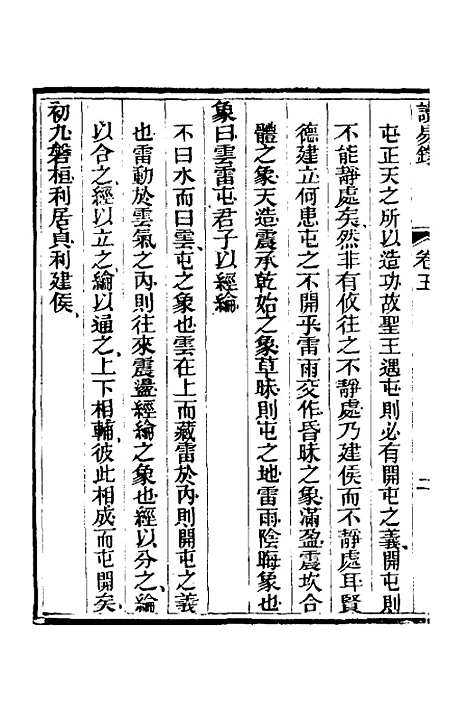 讀易錄 卷五 二
屯正天之所以造功故聖王遇屯則必有開屯之義開屯則
不能靜處矣然非有攸往之不靜處乃建侯而不靜處耳賢
德建立何患屯之不開乎雷雨交作昏昧之象滿盈震坎合
體之象天造震承乾始之象草昧則屯之地雷雨陰晦象也
象曰雲雷屯君子以經綸
不曰水而曰雲屯之象也雲在上而藏雷於內則開屯之義
也雷動於雲氣之內則往來震盪經綸之象也經以分之綸
以合之經以立之綸以通之上下相輔彼此相成而屯開矣
初九磐桓利居貞利建侯